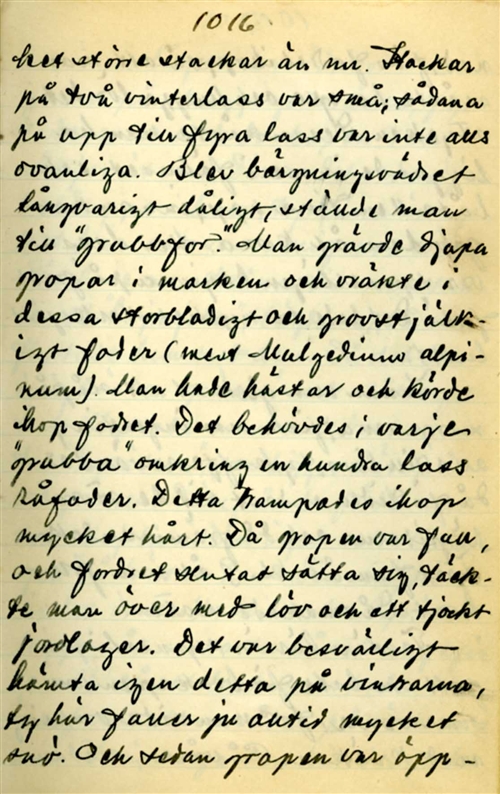 1016
ket större stackar än nu. Stackar
på två vinterlass var små; sådana
på upp till fyra lass var inte alls
ovanliga. Blev bärgningsvädret
långvarigt dåligt, ställde man
till "grubbfor". Man grävde djupa
gropar i marken och vräkte i
dessa storbladigt och grovstjälk-
igt foder (mest Mulgedium alpi-
num). Man hade hästar och körde
ihop fodret. Det behövdes i varje
"grubba" omkring en hundra lass
råfoder. Detta trampades ihop
mycket hårt. Då gropen var full,
och fordret slutat sätta sig, täck-
te man över med löv och ett tjockt
jordlager. Det var besvärligt
hämta igen detta på vintrarna,
ty här faller ju alltid mycket
snö. Och sedan gropen var öpp-